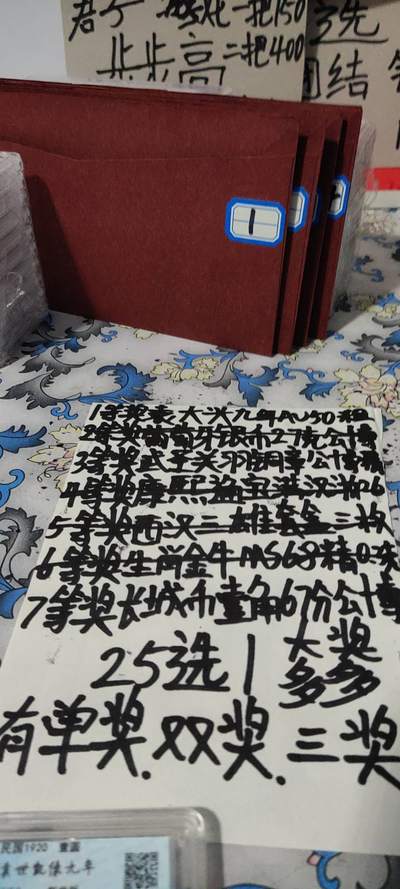 一把150
步步高二把400
选
团结
1
1等奖袁大头九年AU50
2等奖葡萄牙银币27克公博
3等奖
4等奖康熙通宝满汉
5等奖西汉三雄套盒三枚
6等奖生肖金牛MS68精
7等奖长城币壹角67份公博
25选1 大奖多多
有单奖.双奖.三奖
民国1920 壹圆
袁世凯像九年